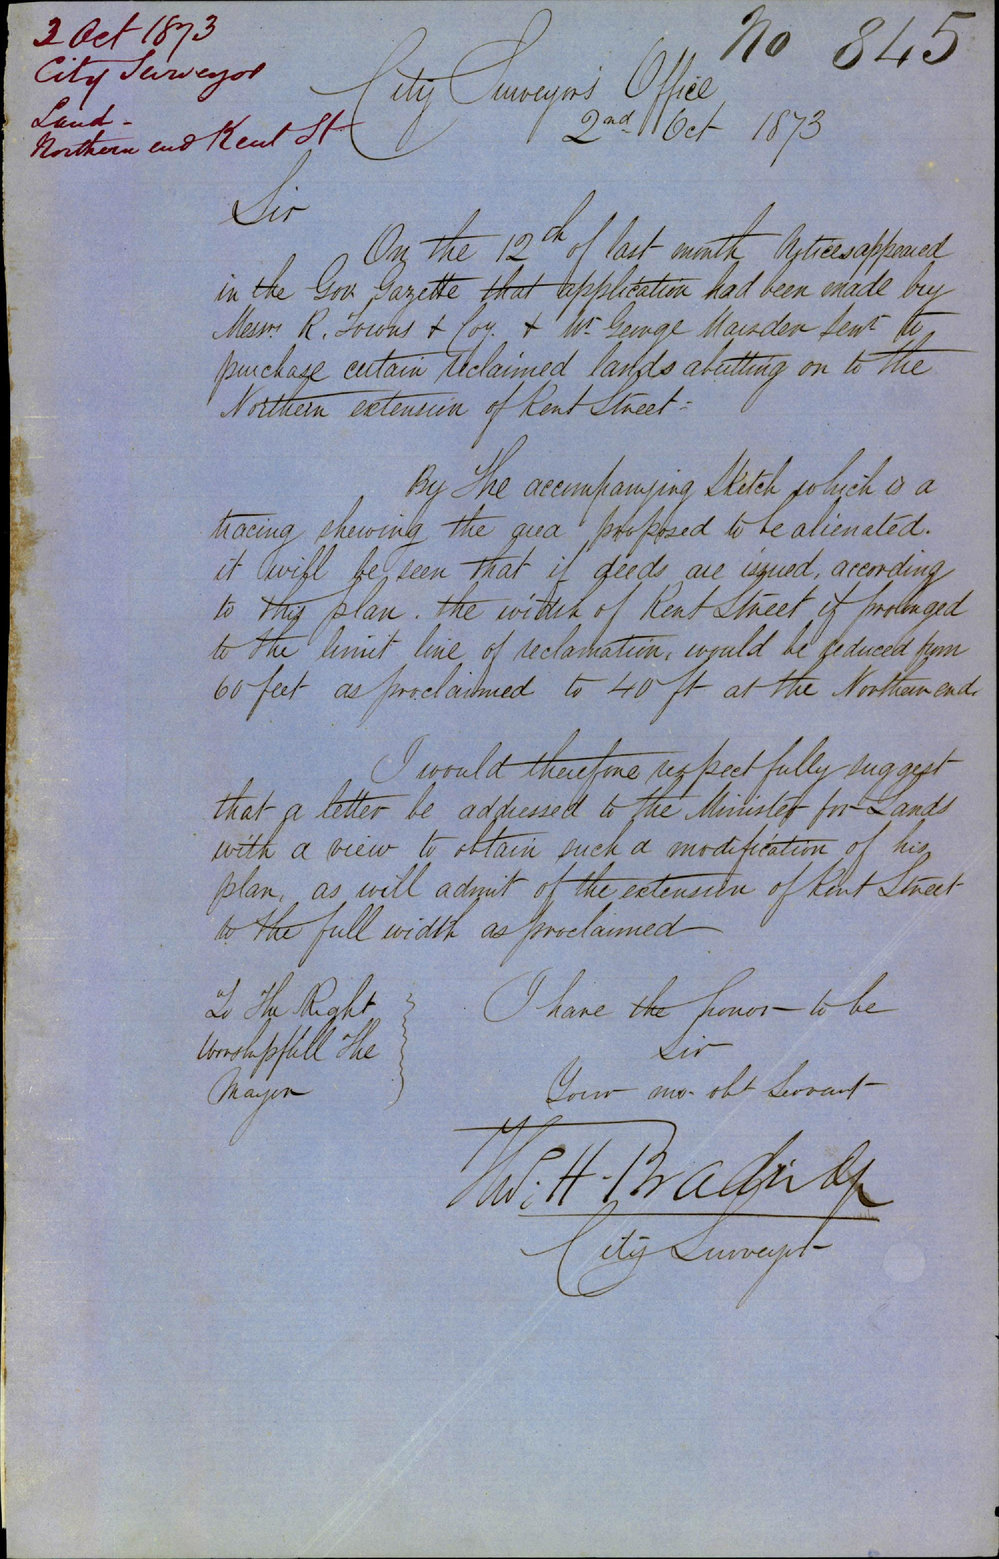 2 Oct 1873
City Surveyor
Land -
Northern end Kent St
No 845
City Surveyor's Office
2nd Oct 1873
Sir
On the 12th of last month Notices appeared
in the Gov. Gazette that application had been made by
Messrs. R. Towns & Coy. & Mr George Marsden Senr to
purchase certain reclaimed lands abutting on to the
Northern extension of Kent Street =
By the accompanying Sketch which is a
tracing shewing the area proposed to be alienated.
it will be seen that if deeds are issued, according
to this plan. the width of Kent Street if prolonged
to the limit line of reclamation, would be reduced from
60 feet as proclaimed to 40 ft at the Northern end.
I would therefore respectfully suggest
that a letter be addressed to the Minister for Lands
with a view to obtain such a modification of his
plan, as will admit of the extension of Kent Street
to the full width as proclaimed
To The Right
Worshipfull The
Mayor
I have the honor to be
Sir
Your mo. obt Servant
Thos. H. Bradridge
City Surveyor